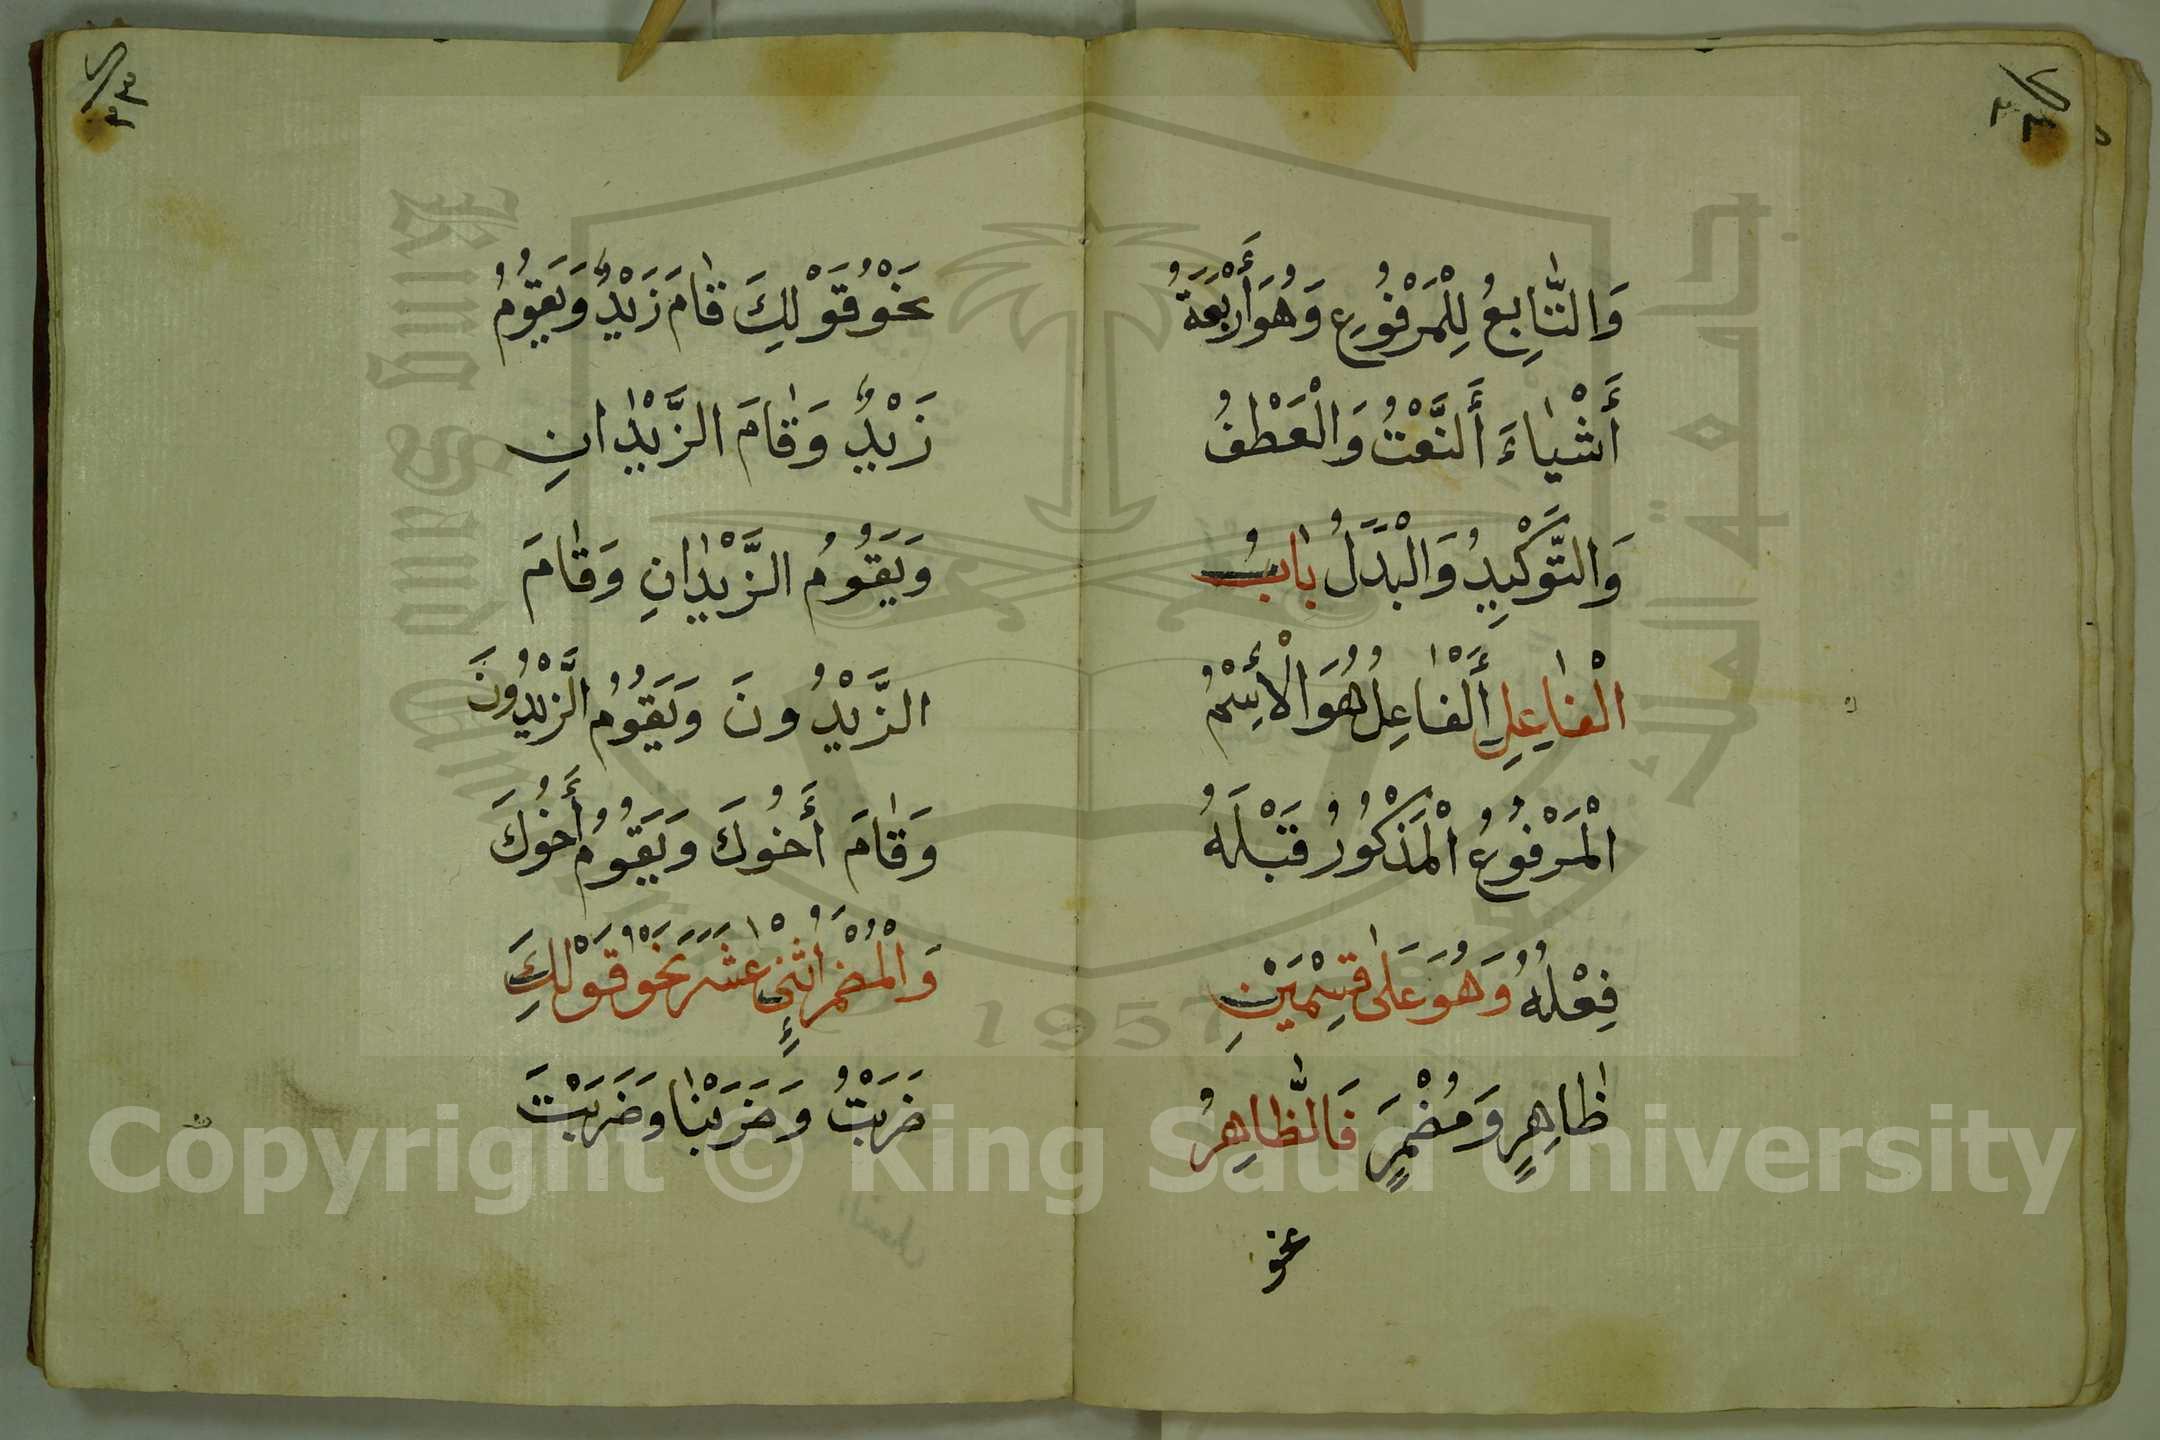 وَالتَّابِعُ لِلْمَرْفُوعِ وَهُوَ أَرْبَعَةُ
أَشْيَاءَ أَلنَّعْتُ وَالْعَطْفُ
وَالتَّوْكِيدُ وَالْبَدَلُ بَابُ
الْفَاعِلِ أَلْفَاعِلُ هُوَ الْأِسْمُ
الْمَرْفُوعُ الْمَذْكُورُ قَبْلَهُ
فِعْلُهُ وَهُوَ عَلَى قِسْمَيْنِ
ظَاهِرٍ وَمُضْمَرٍ فَالظَّاهِرُ
نحو
نَحْوُ قَوْلِكَ قَامَ زَيْدٌ وَيَقُومُ
زَيْدٌ وَقَامَ الزَّيْدَانِ
وَيَقُومُ الزَّيْدَانِ وَقَامَ
الزَّيْدُونَ وَيَقُومُ الزَّيْدُونَ
وَقَامَ أَخُوكَ وَيَقُومُ أَخُوكَ
وَالْمُضْمَرُ اثْنَى عَشَرَ نَحْوَ قَوْلِكَ
ضَرَبْتُ وَضَرَبْنَا وَضَرَبْتَ
جامعة الملك سعود
King Saud University
1957
Copyright © King Saud University